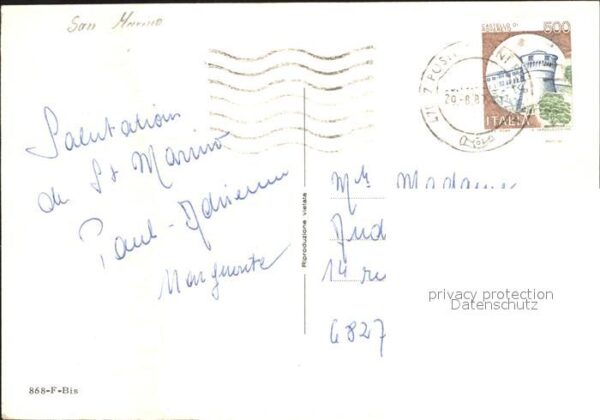 San Marino
CASTELLO DI
500
ITALIA
Salutations
de St Marino
Paul-Adrienne
Marguerite
Riproduzione vietata
Mr Madame
Jud
14 ru
6827
privacy protection
Datenschutz
868-F-Bis